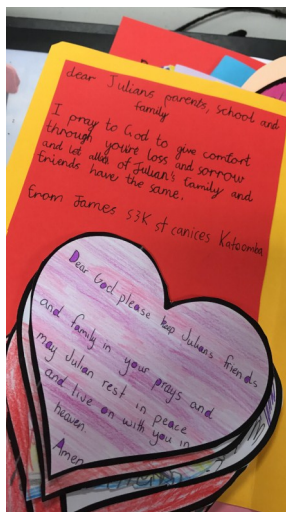 dear Julians parents, school and
family
I pray to God to give comfort
through you're loss and sorrow
and let all of Julian's family and
friends have the same.
from James S3K st canices Katoomba
Dear God please keep Julians friends
and family in your prays and
may Julian rest in peace
and live on with you in
heaven
Amen